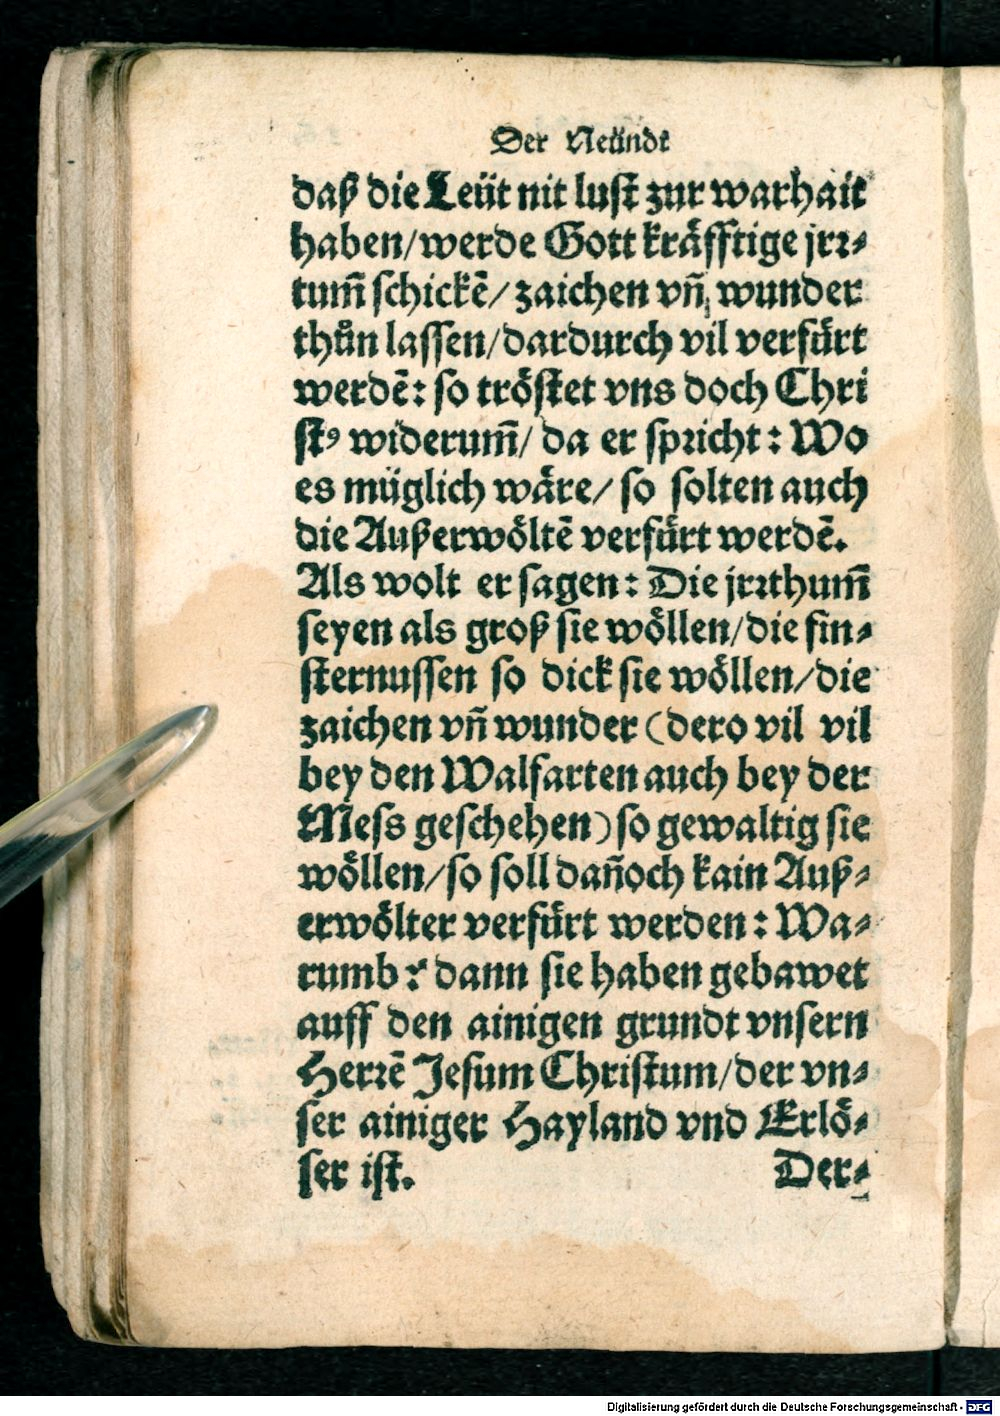 Der Neündt
daß die Leüt nit lust zur warhait
haben/werde Gott kräfftige jrr⸗
tum̃ schickẽ/zaichen vñ wunder
thůn lassen/dardurch vil verfürt
werdẽ: so tröstet vns doch Chri
stꝰ widerum̃/ da er spricht: Wo
es müglich wäre/ so solten auch
die Außerwöltẽ verfürt werdẽ.
Als wolt er sagen: Die jrrthum̃
seyen als groß sie wöllen/die fin⸗
sternussen so dick sie wöllen/die
zaichen vñ wunder (dero vil vil
bey den Walfarten auch bey der
Mess geschehen) so gewaltig sie
wöllen/so soll dañoch kain Auß⸗
erwölter verfürt werden: Wa⸗
rumb? dann sie haben gebawet
auff den ainigen grundt vnsern
Herrẽ Jesum Christum/der vn⸗
ser ainiger Hayland vnd Erlö⸗
ser ist. Der⸗
Digitalisierung gefördert durch die Deutsche Forschungsgemeinschaft - DFG